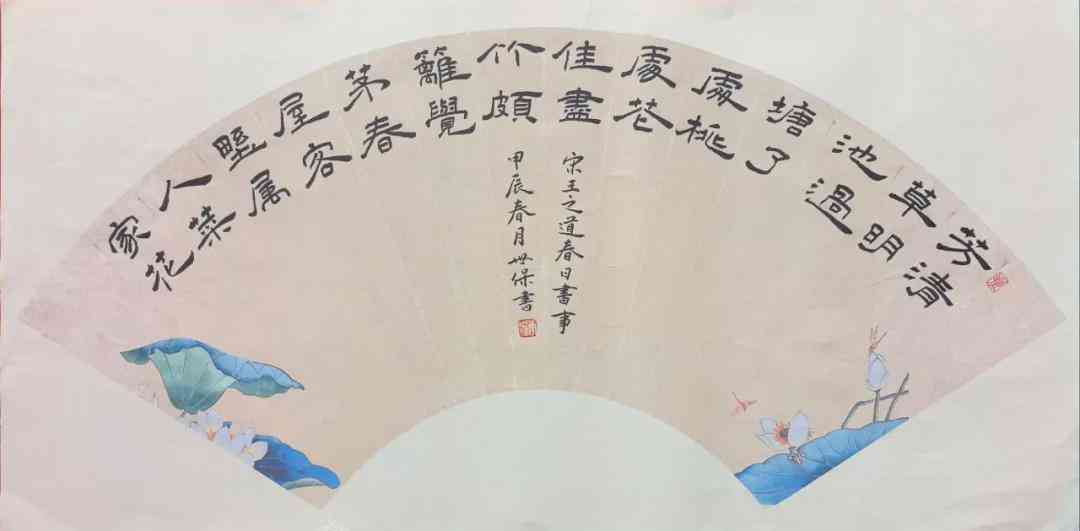 芳草池塘處處佳竹籬茅屋野人家
清明過了桃花盡頗覺春容属菜花
宋王之道春日書事
甲辰春月世保書